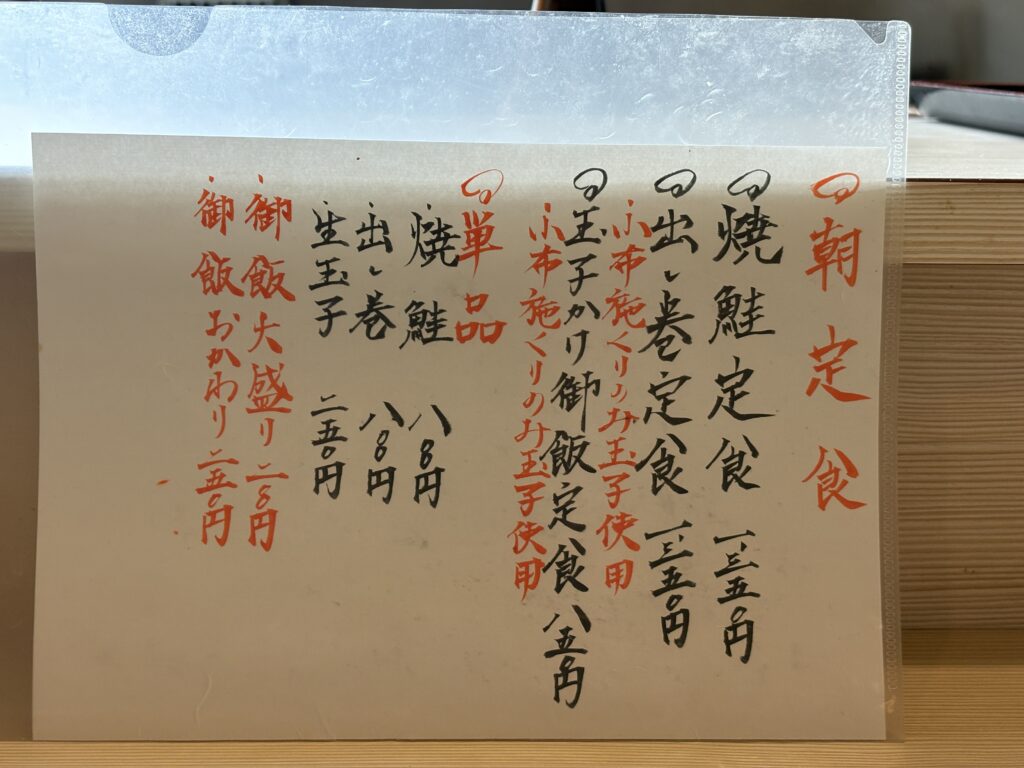 朝定食
焼鮭定食 一、三五〇円
出し巻定食 一、三五〇円
小布施くりのみ玉子使用
玉子かけ御飯定食 八五〇円
小布施くりのみ玉子使用
単品
焼鮭 八〇〇円
出し巻 八〇〇円
生玉子 二五〇円
御飯大盛り 二〇〇円
御飯おかわり 二五〇円